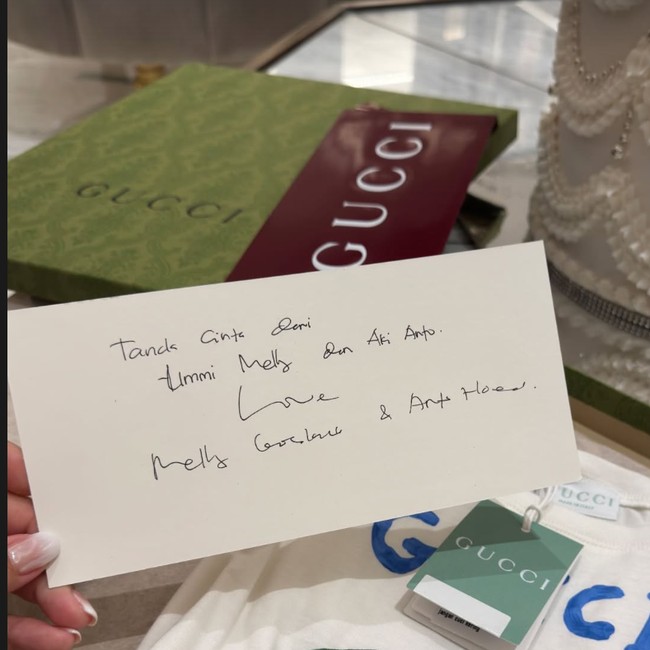 GUCCI
GUCCI
Tanda Cinta dari
Ummi Melly dan Aki Anto.
Love
Melly Goeslaw & Anto Hoed.
GUCCI
GUCCI